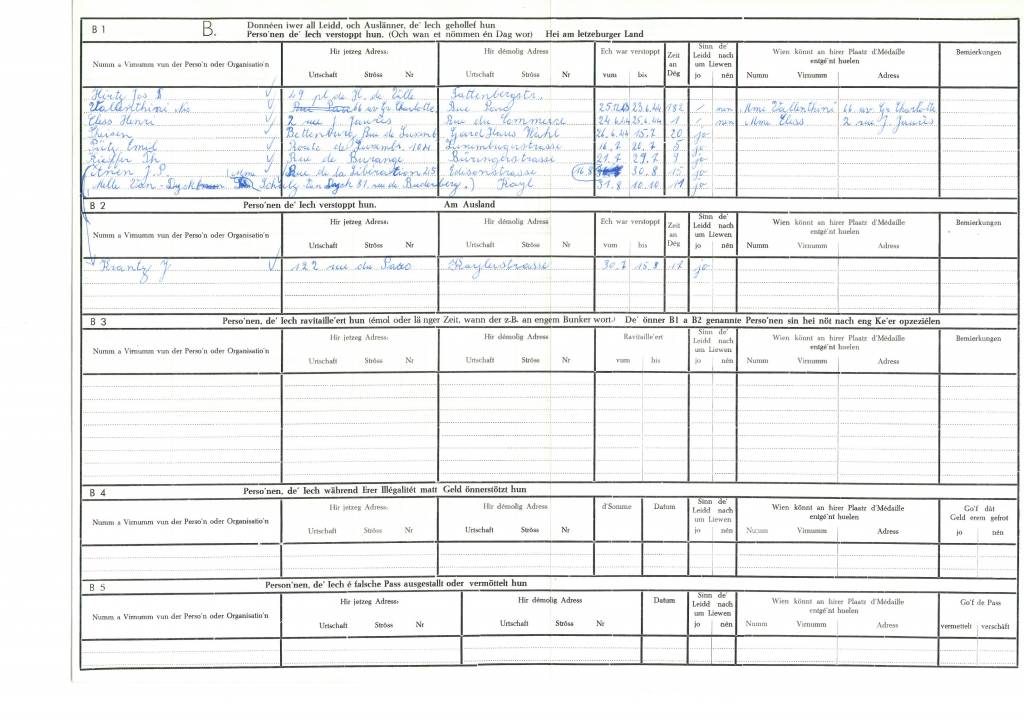 B 1 B. Donnéen iwer all Leidd, och Auslänner, de' Iech gehollef hun
Perso'nen de' Iech verstoppt hun. (Och wan et nömmen én Dag wor) Hei am letzeburger Land
Numm a Virnumm vun der Perso'n oder Organisatio'n Hir jetzeg Adress: Hir démolig Adress: Ech war verstoppt Zeit an Dég Sinn de' Leidd nach um Liewen Wien könnt an hirer Plaatz d'Médaille entgé'nt huelen Bemierkungen
Urtschaft Ströss Nr Urtschaft Ströss Nr vum bis jo nén Numm Virnumm Adress
Jos 49 pl. de H. de Ville
66 av. Gr. Charlotte Rue 23.6.44 182 nen Mme 66 av. Gr. Charlotte
Class Henri 2 rue J. Jaurès Rue du Commerce 24.6.44 25.6.44 1 nen Mme Class 2 rue J. Jaurès
Bettenburg, Rue de Luxemb. 26.6.44 15.7. 20 jo
Emil Route de Luxembr. 104 Luxemburgstrasse 16.7 5 jo
Kieffer Th. Rue de Burange Büringerstrasse 21.7 29.7 9 jo
J.P. Rue de la Libération 25 Edisonstrasse 16.8 30.8 15 jo
Melle Van-Dyck (Mme van Dyck 81, rue de Budersberg.) Kayl 31.8 10.10 jo
B 2 Perso'nen de' Iech verstoppt hun. Am Ausland
Numm a Virnumm vun der Perso'n oder Organisatio'n Hir jetzeg Adress: Hir démolig Adress: Ech war verstoppt Zeit an Dég Sinn de' Leidd nach um Liewen Wien könnt an hirer Plaatz d'Médaille entgé'nt huelen Bemierkungen
Urtschaft Ströss Nr Urtschaft Ströss Nr vum bis jo nén Numm Virnumm Adress
Krantz J 122 rue du Kaylerstrasse 30.7 15.8 17 jo
B 3 Perso'nen, de' Iech ravitaille'ert hun (émol oder lä nger Zeit, wann der z.B. an engem Bunker wort.) De' önner B1 a B2 genannte Perso'nen sin hei nöt nach eng Ke'er opzeziélen
Numm a Virnumm vun der Perso'n oder Organisatio'n Hir jetzeg Adress: Hir démolig Adress: Ravitaille'ert Sinn de' Leidd nach um Liewen Wien könnt an hirer Plaatz d'Médaille entgé'nt huelen Bemierkungen
Urtschaft Ströss Nr Urtschaft Ströss Nr vum bis jo nén Numm Virnumm Adress
B 4 Perso'nen, de' Iech während Erer Illégalitét matt Geld önnerstötzt hun
Numm a Virnumm vun der Perso'n oder Organisatio'n Hir jetzeg Adress: Hir démolig Adress: d'Somme Datum Sinn de' Leidd nach um Liewen Wien könnt an hirer Plaatz d'Médaille entgé'nt huelen Go'f dât Geld erem gefrot
Urtschaft Ströss Nr Urtschaft Ströss Nr jo nén Numm Virnumm Adress jo nén
B 5 Person'nen, de' Iech é falsche Pass ausgestallt oder vermöttelt hun
Numm a Virnumm vun der Perso'n oder Organisatio'n Hir jetzeg Adress: Hir démolig Adress Datum Sinn de' Leidd nach um Liewen Wien könnt an hirer Plaatz d'Médaille entgé'nt huelen Go'f de Pass
Urtschaft Ströss Nr Urtschaft Ströss Nr jo nén Numm Virnumm Adress vermettelt verschâft